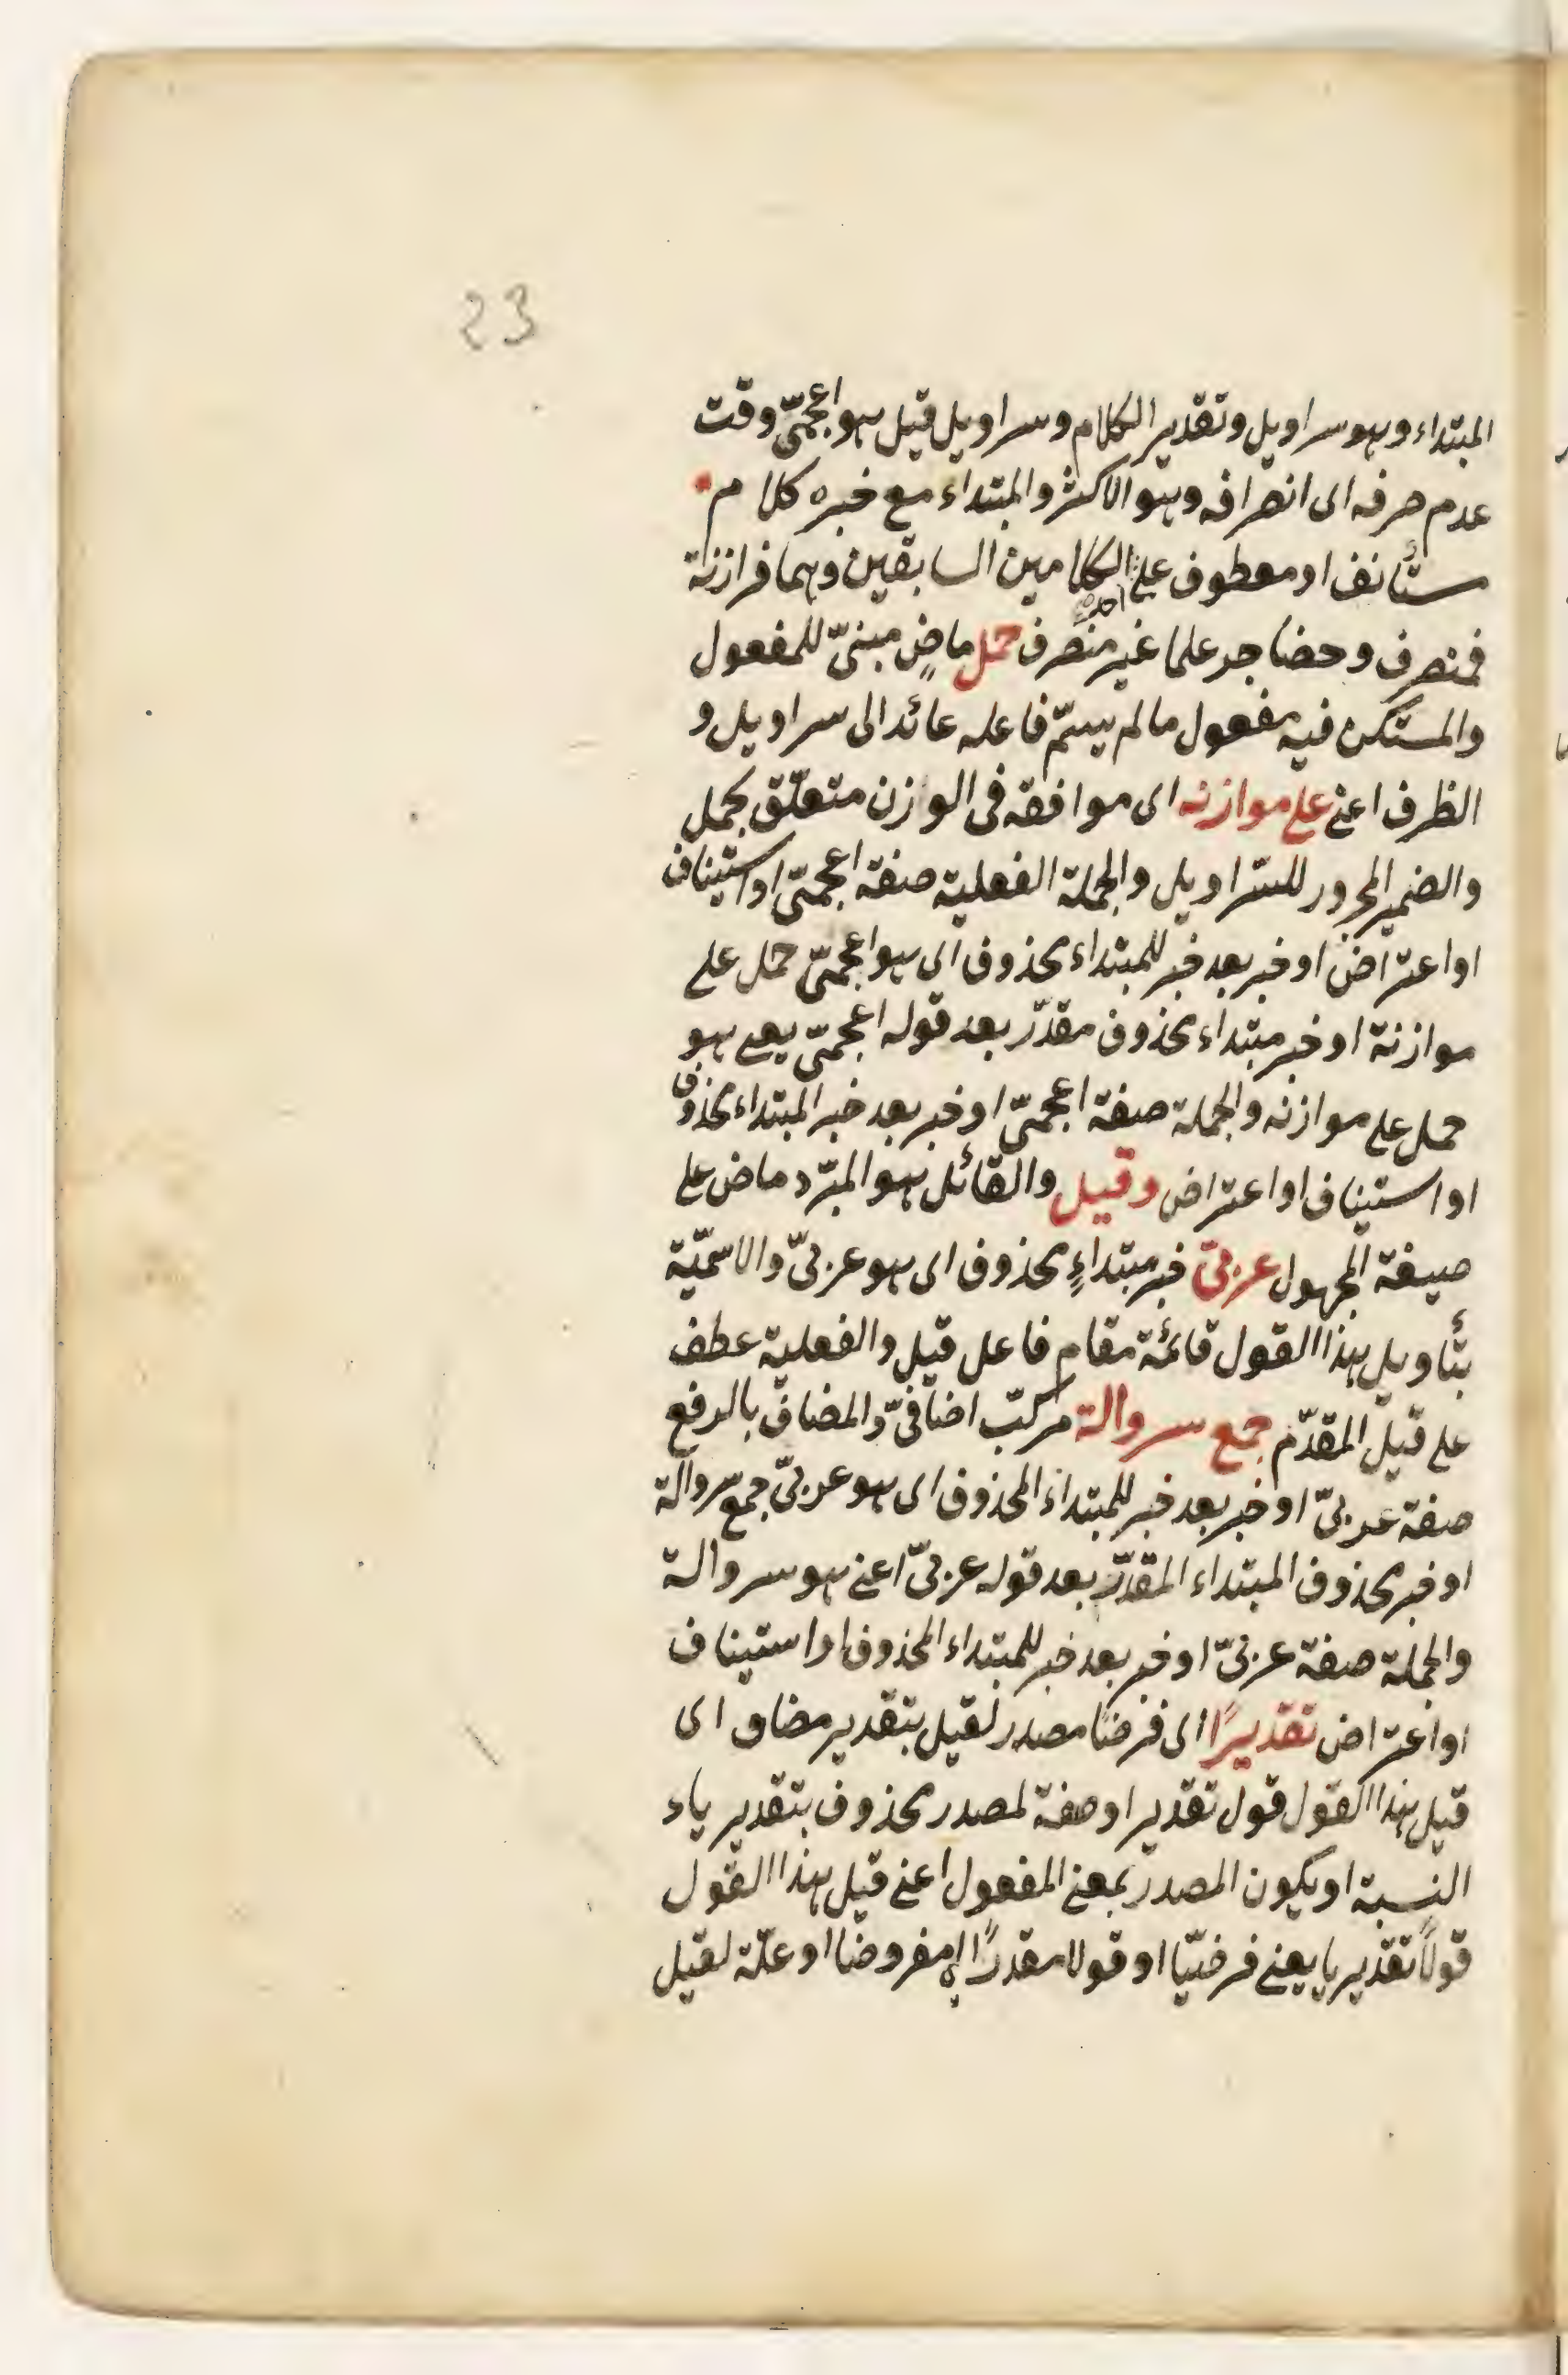 23
المبتداء وهو سراويل وتقدير الكلام وسراويل قيل هو اعجمىّ وقت
عدم صرفه الى انصرافه وهو الاكثر والمبتداء مع خبره كلام م
ستأنف او معطوف على الكلامين السابقين وهما فرازنة
احد
فمنصرف وحضاجر علما غير منصرف حمل ماضٍ مبنىّ للمفعول
والمستكن فيه مفعول مالم يسمّ فاعله عائد الى سراويل و
الظرف اعنى على موازنه اى موافقه فى الوازن متعلّق بحمل
والضمير المجرور للسّراويل والجملة الفعلية صفة اعجمىّ او استيناف
او اعتراض او خبر بعد خبر للمبتداء محذوف اى هو اعجمىّ حمل على
موازنة او خبر مبتداء محذوف مقدّر بعد قوله اعجمىّ يعنى هو
حمل على موازنه والجملة صفة اعجمىّ او خبر بعد خبر المبتداء محذوف
او استيناف او اعتراض وقيل والقائل هو المبرّد ماض على
صيغة المجهول عربىّ خبر مبتداءٍ محذوف اى هو عربىّ والاسميّة
بتأويل هذا القول قائمة مقام فاعل قيل والفعلية عطف
على قيل المقدّم جمع سروالة مركّب اضافىّ والمضاف بالرفع
صفة عربىّ او خبر بعد خبر للمبتداء المحذوف اى هو عربىّ جمع سروالة
او خبر محذوف المبتداء المقدّر بعد قوله عربىّ اعنى هو سروالة
والجملة صفة عربىّ او خبر بعد خبر للمبتداء المحذوف او استيناف
او اعتراض تقديرًا اى فرضًا مصدر لقيل بتقدير مضاف اى
قيل هذا القول قول تقدير او صفة لمصدر محذوف بتقدير ياء
النسبة او يكون المصدر بمعنى المفعول اعنى قيل هذا القول
قولاً تقديريا يعنى فرضيّا او قولا مقدرًا اى مفروضا او علّة لقيل